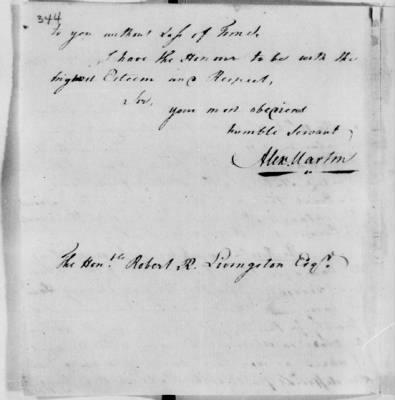 344
to you without Loss of Time.
I have the Honour to be with the
highest Esteem and Respect,
Sir,
your most obedient
humble Servant
Alex. Martin
The Hon.ble Robert R. Livingston Esqr.